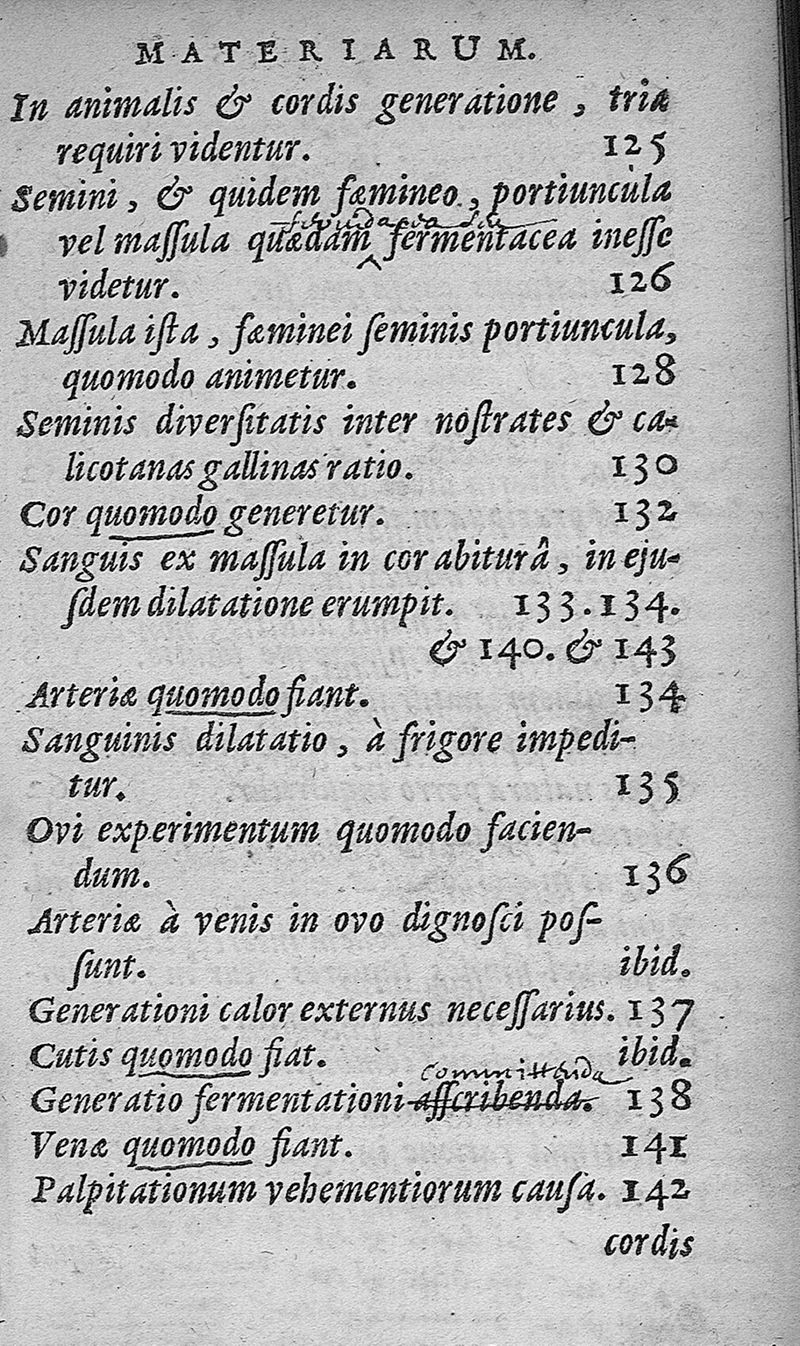 MATERIARUM.
In animalis & cordis generatione, tria
requiri videntur. 125
Semini, & quidem fæmineo, portiuncula
vel maſſula quædam fermentacea ineſſe
videtur. 126
Maſſula iſta, fæminei ſeminis portiuncula,
quomodo animetur. 128
Seminis diverſitatis inter noſtrates & ca-
licotanas gallinas ratio. 130
Cor quomodo generetur. 132
Sanguis ex maſſula in cor abiturâ, in eju-
ſdem dilatatione erumpit. 133.134.
& 140. & 143
Arteriæ quomodo fiant. 134
Sanguinis dilatatio, à frigore impedi-
tur. 135
Ovi experimentum quomodo facien-
dum. 136
Arteriæ à venis in ovo dignoſci poſ-
ſunt. ibid.
Generationi calor externus neceſſarius. 137
Cutis quomodo fiat. ibid.
committenda
Generatio fermentationi aſſcribenda. 138
Venæ quomodo fiant. 141
Palpitationum vehementiorum cauſa. 142
cordis